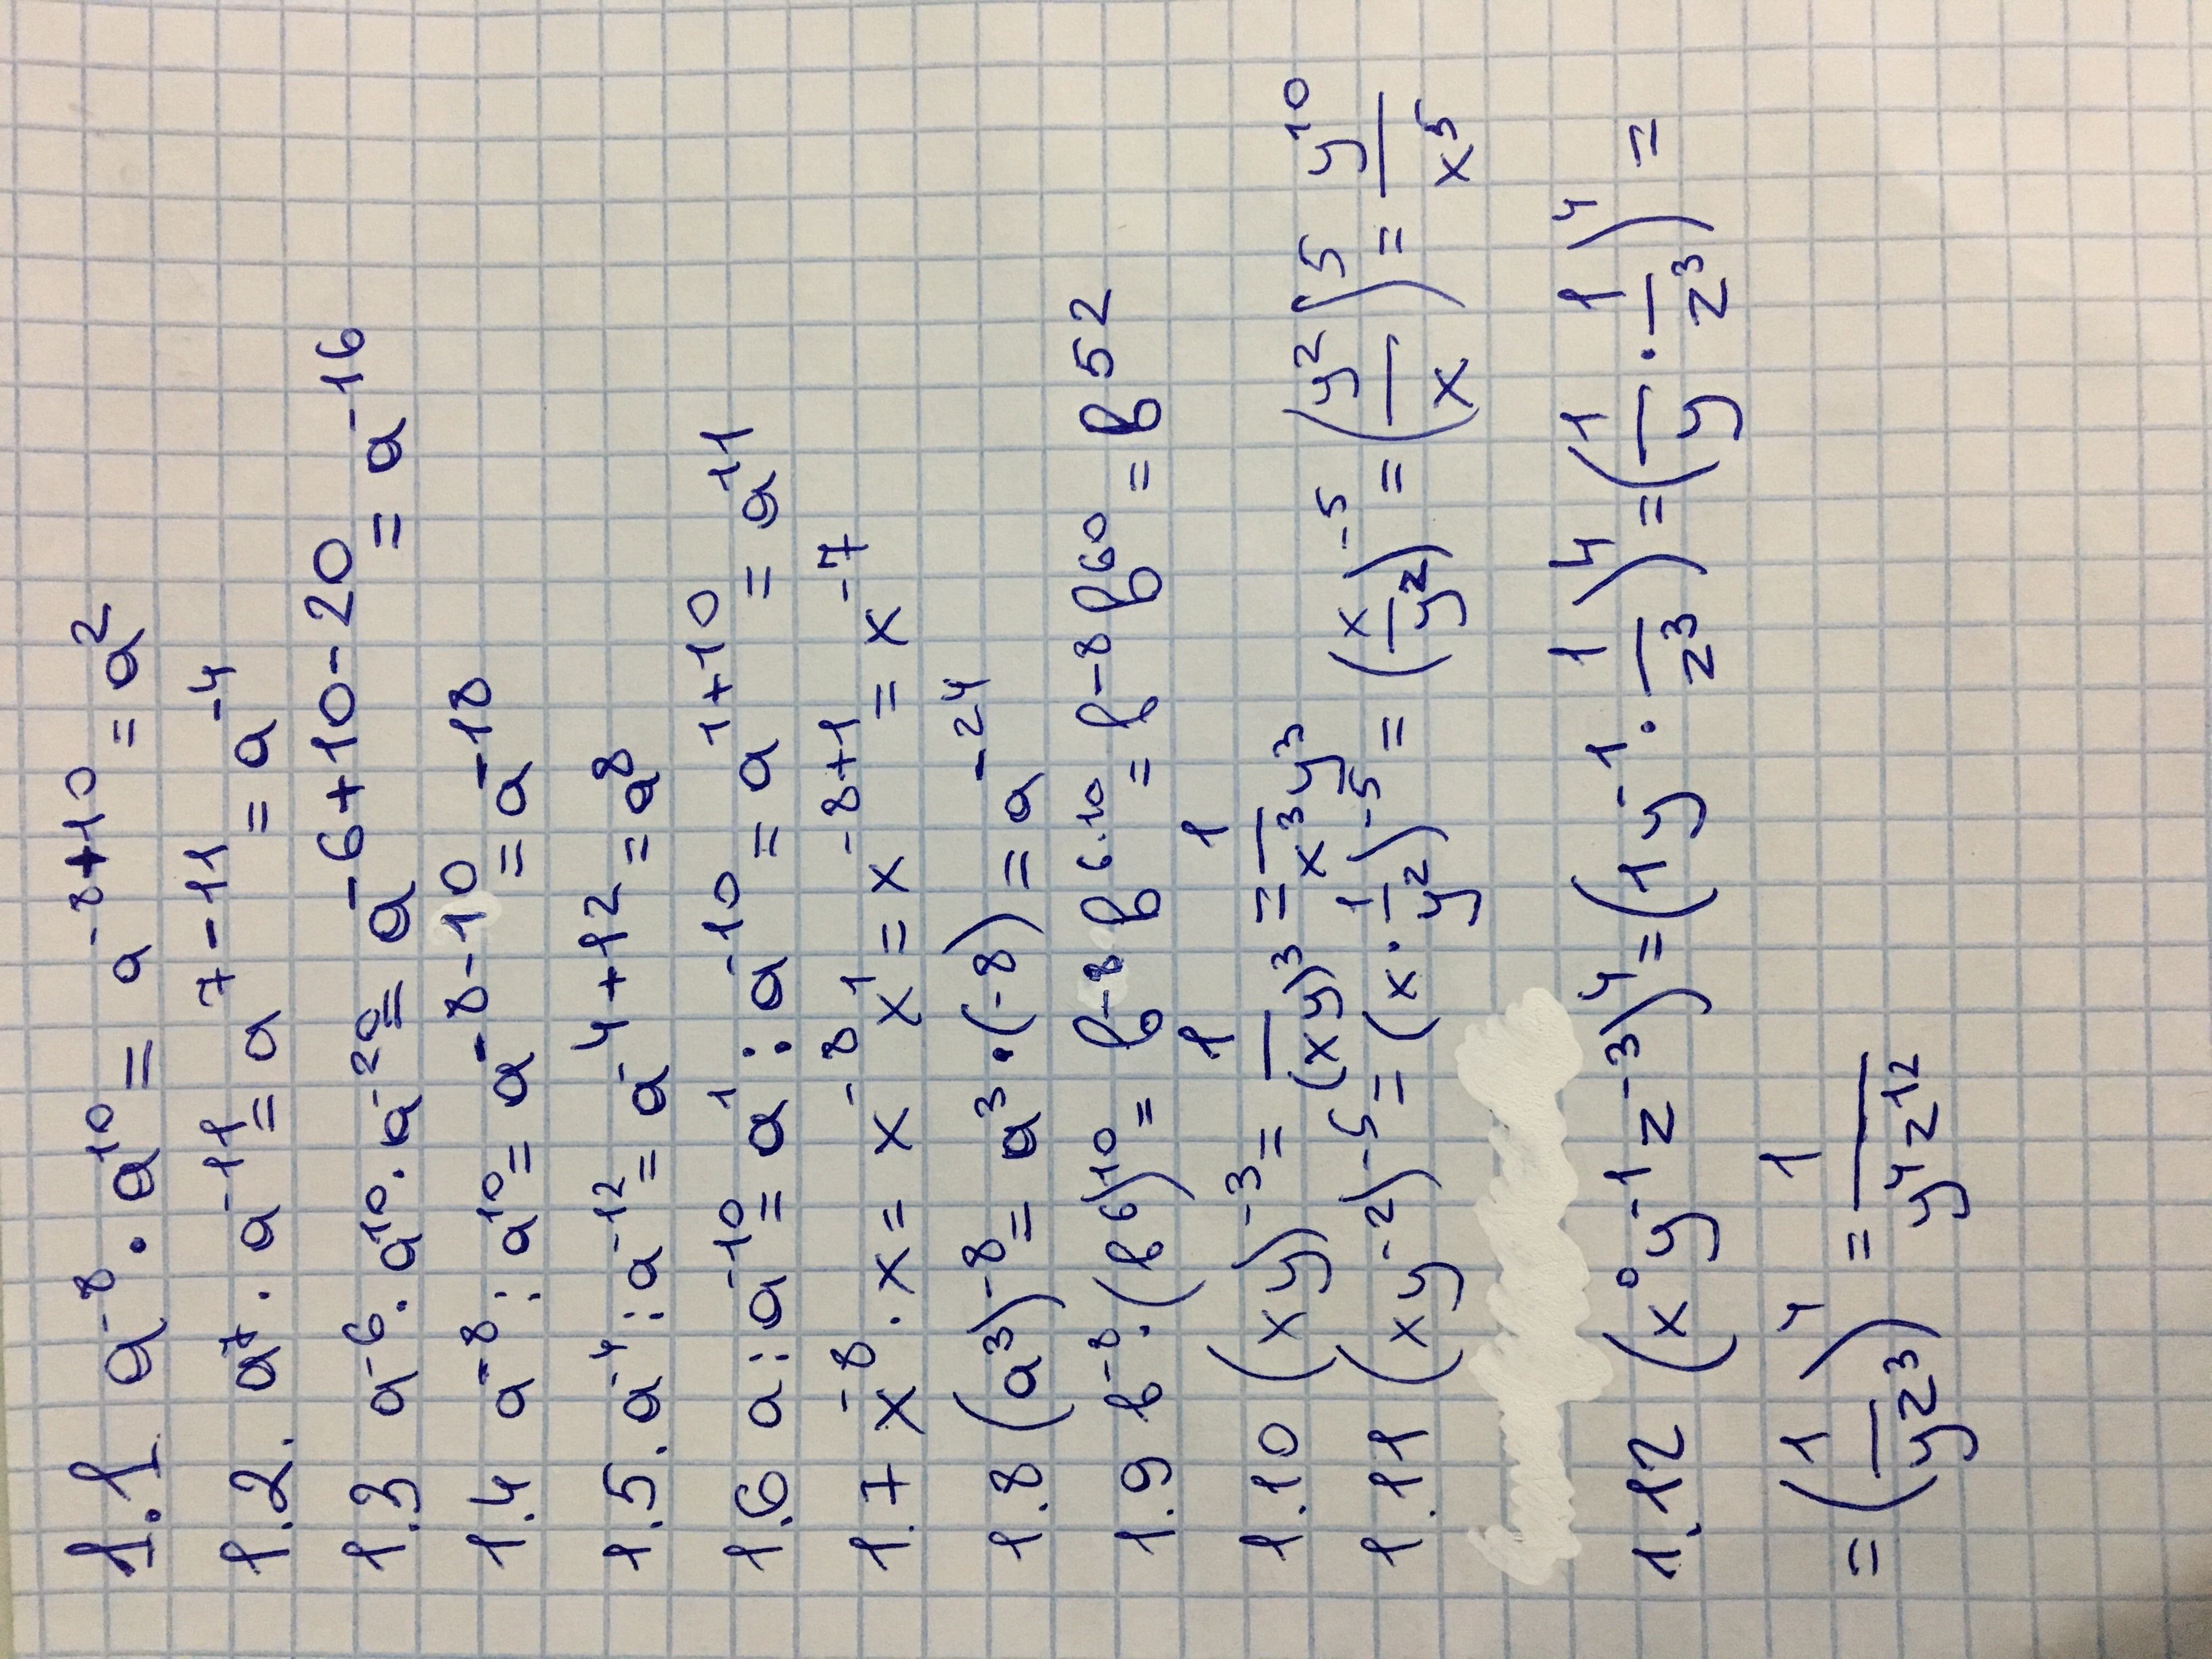 1.1 a⁻⁸ · a¹⁰ = a⁻⁸⁺¹⁰ = a²
1.2. a⁷ · a⁻¹¹ = a⁷⁻¹¹ = a⁻⁴
1.3 a⁻⁶ · a¹⁰ · a⁻²⁰ = a⁻⁶⁺¹⁰⁻²⁰ = a⁻¹⁶
1.4 a⁻⁸ : a¹⁰ = a⁻⁸⁻¹⁰ = a⁻¹⁸
1.5. a⁻⁴ : a⁻¹² = a⁻⁴⁺¹² = a⁸
1.6 a : a⁻¹⁰ = a¹ : a⁻¹⁰ = a¹⁺¹⁰ = a¹¹
1.7 x⁻⁸ · x = x⁻⁸ x¹ = x⁻⁸⁺¹ = x⁻⁷
1.8 (a³)⁻⁸ = a³·(-8) = a⁻²⁴
1.9 b⁻⁸ · (b⁶)¹⁰ = b⁻⁸ b⁶·¹⁰ = b⁻⁸ b⁶⁰ = b52
1.10 (xy)⁻³ = 1/(xy)³ = 1/x³y³
1.11 (xy⁻²)⁻⁵ = (x · 1/y²)⁻⁵ = (x/y²)⁻⁵ = (y²/x)⁵ = y¹⁰/x⁵
1.12 (x⁰y⁻¹z⁻³)⁴ = (1y⁻¹ · 1/z³)⁴ = (1/y · 1/z³)⁴ =
= (1/yz³)⁴ = 1/y⁴z¹²